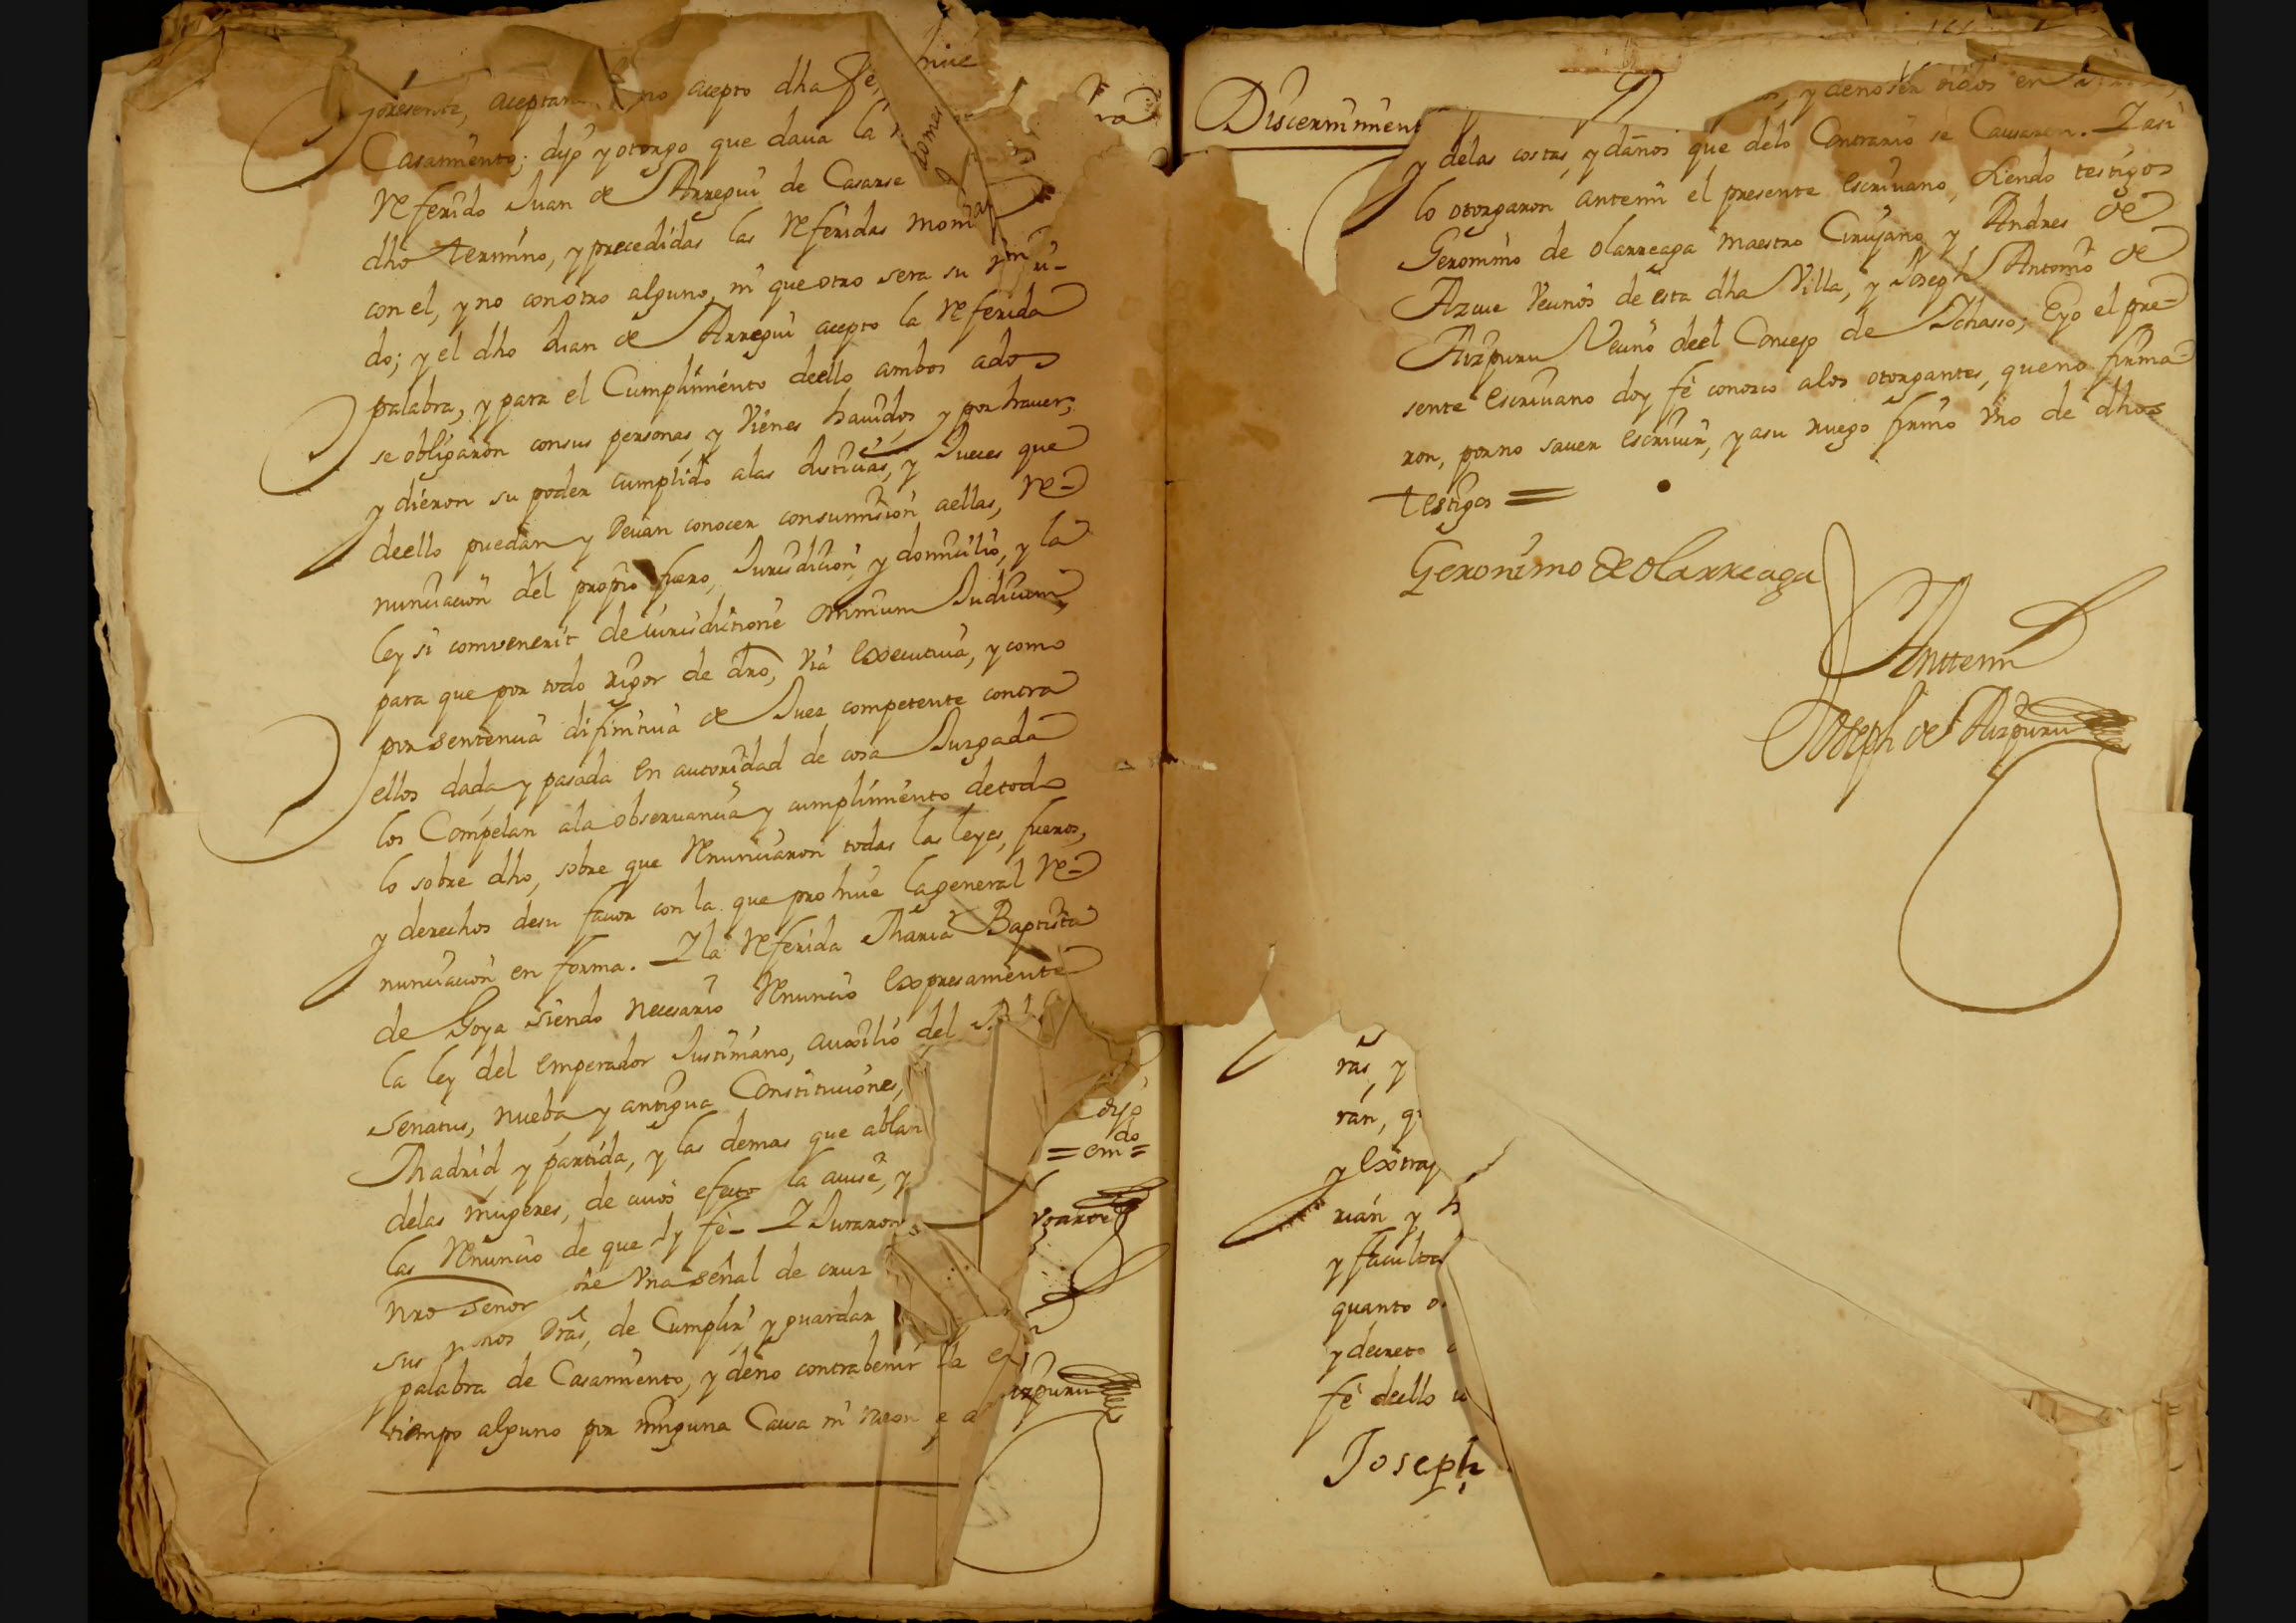 presente, aceptara, y no acepto dha
Casamiento; dijo y otorgo que daua la
Referido Juan de Arregui de Casarse
dho termino, y precedidas las Referidas moni
con el, y no con otro alguno, ni que otro sera su
do; y el dho Juan de Arregui acepto la Referida
palabra, y para el Cumplimiento deello ambos ados
se obligaron consus personas, y Vienes hauidos, y por hauer,
y dieron su poder cumplido alas Justicias, y Jueces que
deello puedan, y Deuan conocer consumision aellas, Re-
nunciacion del propio fuero, Jurisdicion, y domicilio, y la
ley si comvenerit de iurisdictione omnium Judicum,
para que por todo rigor de dro, via executiua, y como
por sentencia difinitiua de Juez competente contra
ellos dada y pasada en autoridad de cosa Juzgada
los Compelan ala obseruancia y cumplimiento detodo
lo sobre dho, sobre que Renunciaron todas las leyes, fueros,
y derechos desu fauor con la que prohiue la general Re-
nunciacion en forma. Y la Referida Maria Baptista
de Goya siendo necesario Renuncio expresamente
la ley del emperador Justiniano, auxilio del
senatus, nueba y antigua Constituciones,
Madrid, y partida, y las demas que ablan
delas mugeres, de cuios efecto la auise, y
las Renuncio de que doy fe- Y Juraron
nro señor una señal de cruz
sus manos Dras, de Cumplir, y guardar
palabra de Casamiento, y deno contrabenir
tiempo alguno por ninguna Causa ni razon
dijo
do
= em =
izpuru
Discernimient
y deno ser oidos en
y delas costas, y daños que delo Contrario se Causaren. Y asi
lo otorgaron antemi el presente escriuano, siendo testigos
Geronimo de olarreaga maestro Cirujano, y Andres de
Azcue Vecinos de esta dha Villa, y Joseph Antonio de
Aizpuru Vecino deel Concejo de Ichaso; Eyo el pre-
sente escriuano doy fè conozco alos otorgantes, queno firma-
ron, porno sauer escriuir, y asu ruego firmo vno de dhos
testigos =
Geronimo de olarreaga
Anttemi
Joseph de Aizpuru
ras, y
ran, q
y extraj
rian y h
y facultad
quanto
y decreto
fè deello
Joseph